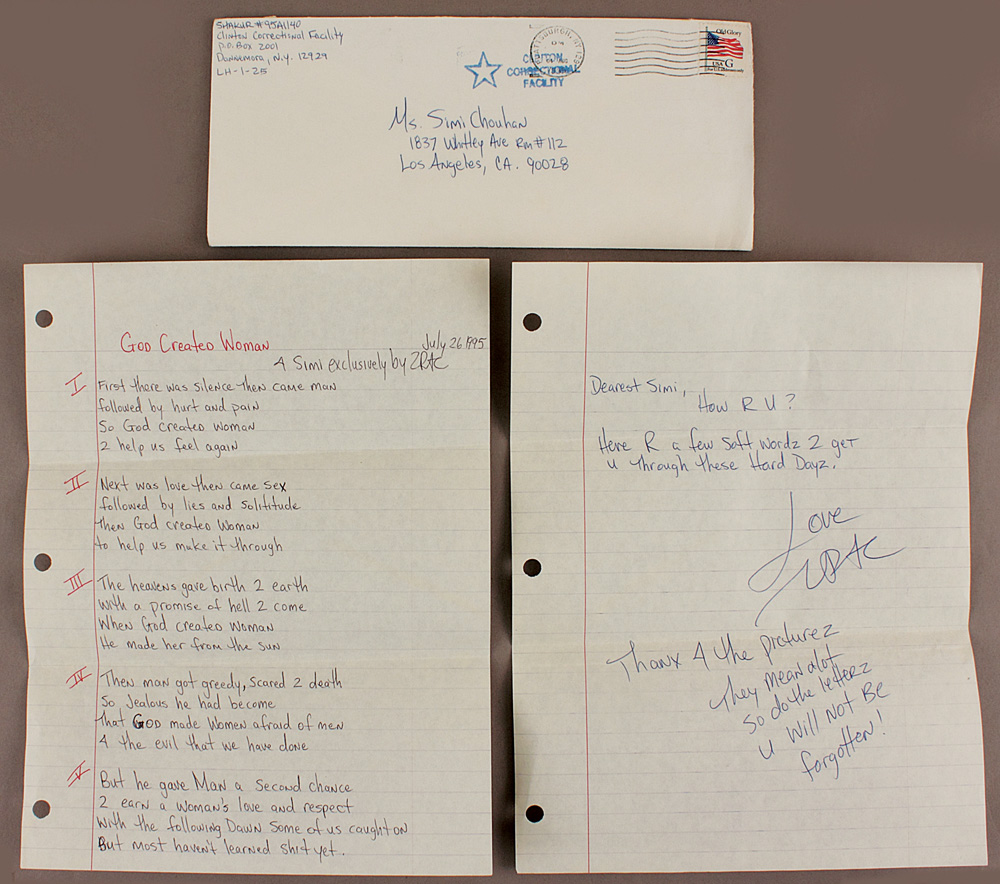 SHAKUR # 95A1140
Clinton Correctional Facility
P.O. Box 2001
Dannemora, N.Y. 12929
LH-1-25
CLINTON
CORRECTIONAL
FACILITY
Old Glory
USA G
Ms. Simi Chouhan
1837 Whitley Ave Rm #112
Los Angeles, CA. 90028
God Created Woman
July 26 1995
4 Simi exclusively by 2PAC
I First there was silence then came man
followed by hurt and pain
So God created Woman
2 help us feel again
II Next was love then came sex
followed by lies and solititude
then God created Woman
to help us make it through
III The heavens gave birth 2 earth
with a promise of hell 2 come
When God created Woman
He made her from the sun
IV Then man got greedy, scared 2 death
So Jealous he had become
that GOD made Women afraid of men
4 the evil that we have done
V But he gave Man a second chance
2 earn a woman's love and respect
with the following Dawn some of us caught on
But most haven't learned shit yet.
Dearest Simi,
How R U?
Here R a few soft wordz 2 get
u through these Hard Dayz.
Love
2PAC
Thanx 4 the picturez
they mean alot
so do the letterz
u will Not Be
forgotten!